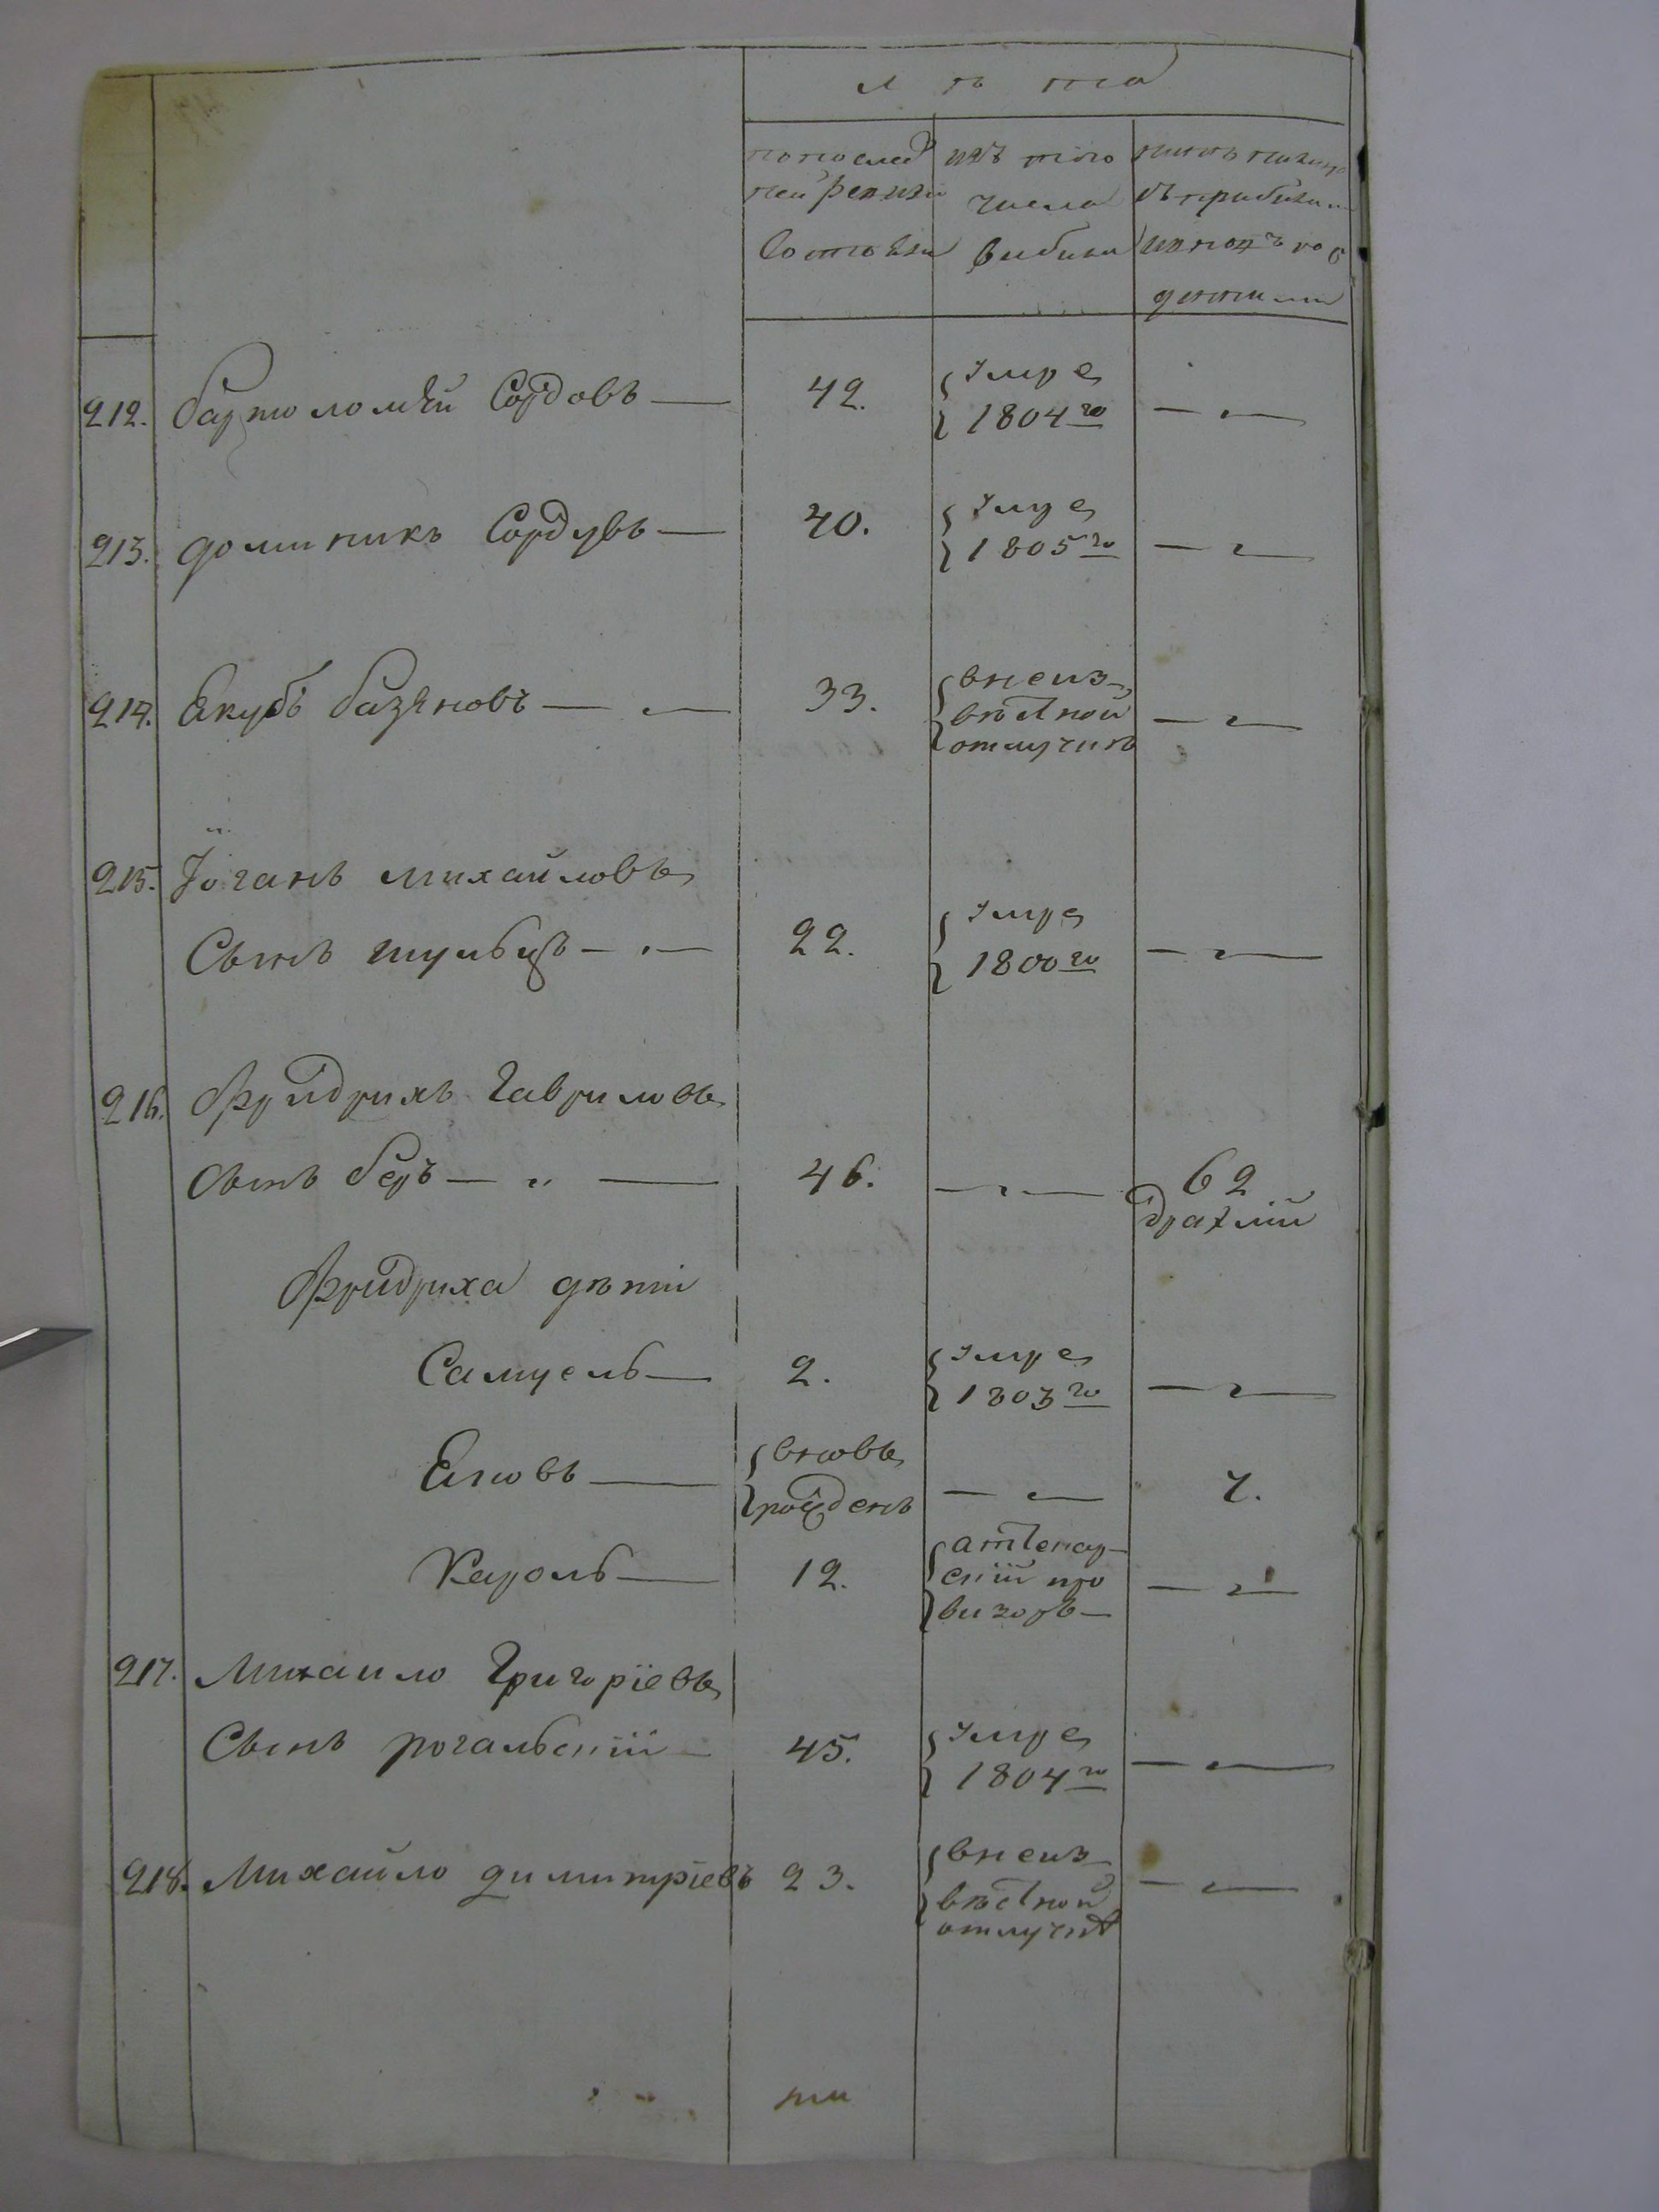 лѣта
попослед изъ того нынѣ налицо
ней ревизіи числа съ прибылы
состояли выбыли
212. бартоломѣй Сордовъ — 42. умре — „ —
1804го
213. доминикъ Сордувъ — 40. умре — „ —
1805го
214. Якубъ базяновъ — „ — 33. внеиз- — „ —
вѣстной
отлучкѣ
215. Іоганъ михайловъ
Сынъ шульцъ — „ — 22. умре — „ —
1800го
216. Фридрихъ Гавриловъ
Сынъ беръ — „ — 46. — „ — 62
Фридриха дѣти
Самуель — 2. умре — „ —
1803го
Яковъ — вновь — „ — 7.
рожденъ
Кароль — 12. — „ —
визоръ —
217. Михайло Григоріевъ
Сынъ рогальскій — 45. умре — „ —
1804го
218. Михайло димитріевъ 23. внеиз- — „ —
вѣстной
отлучкѣ